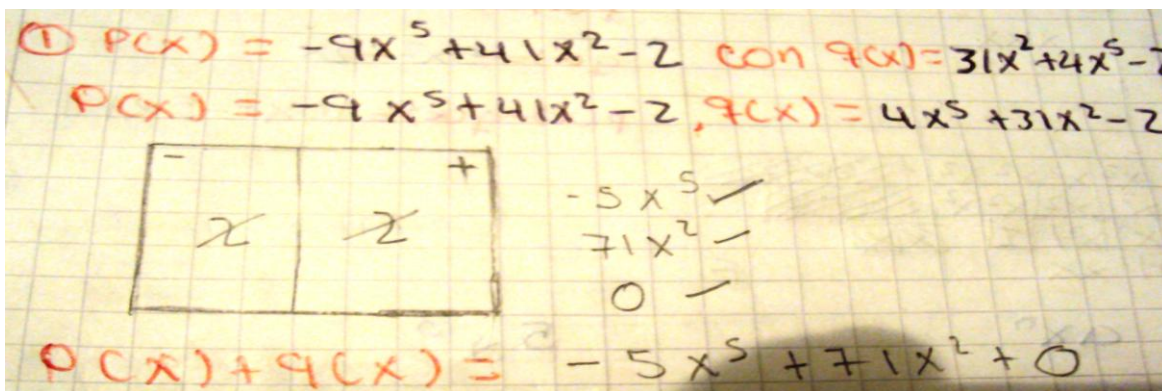 ① P(x) = -9x⁵ + 41x² - 2 con q(x) = 31x² + 4x⁵ -
P(x) = -9x⁵ + 41x² - 2, q(x) = 4x⁵ + 31x² - 2
- +
2 2
-5x⁵ ✓
71x² –
0 –
P(x) + q(x) = -5x⁵ + 71x² + 0